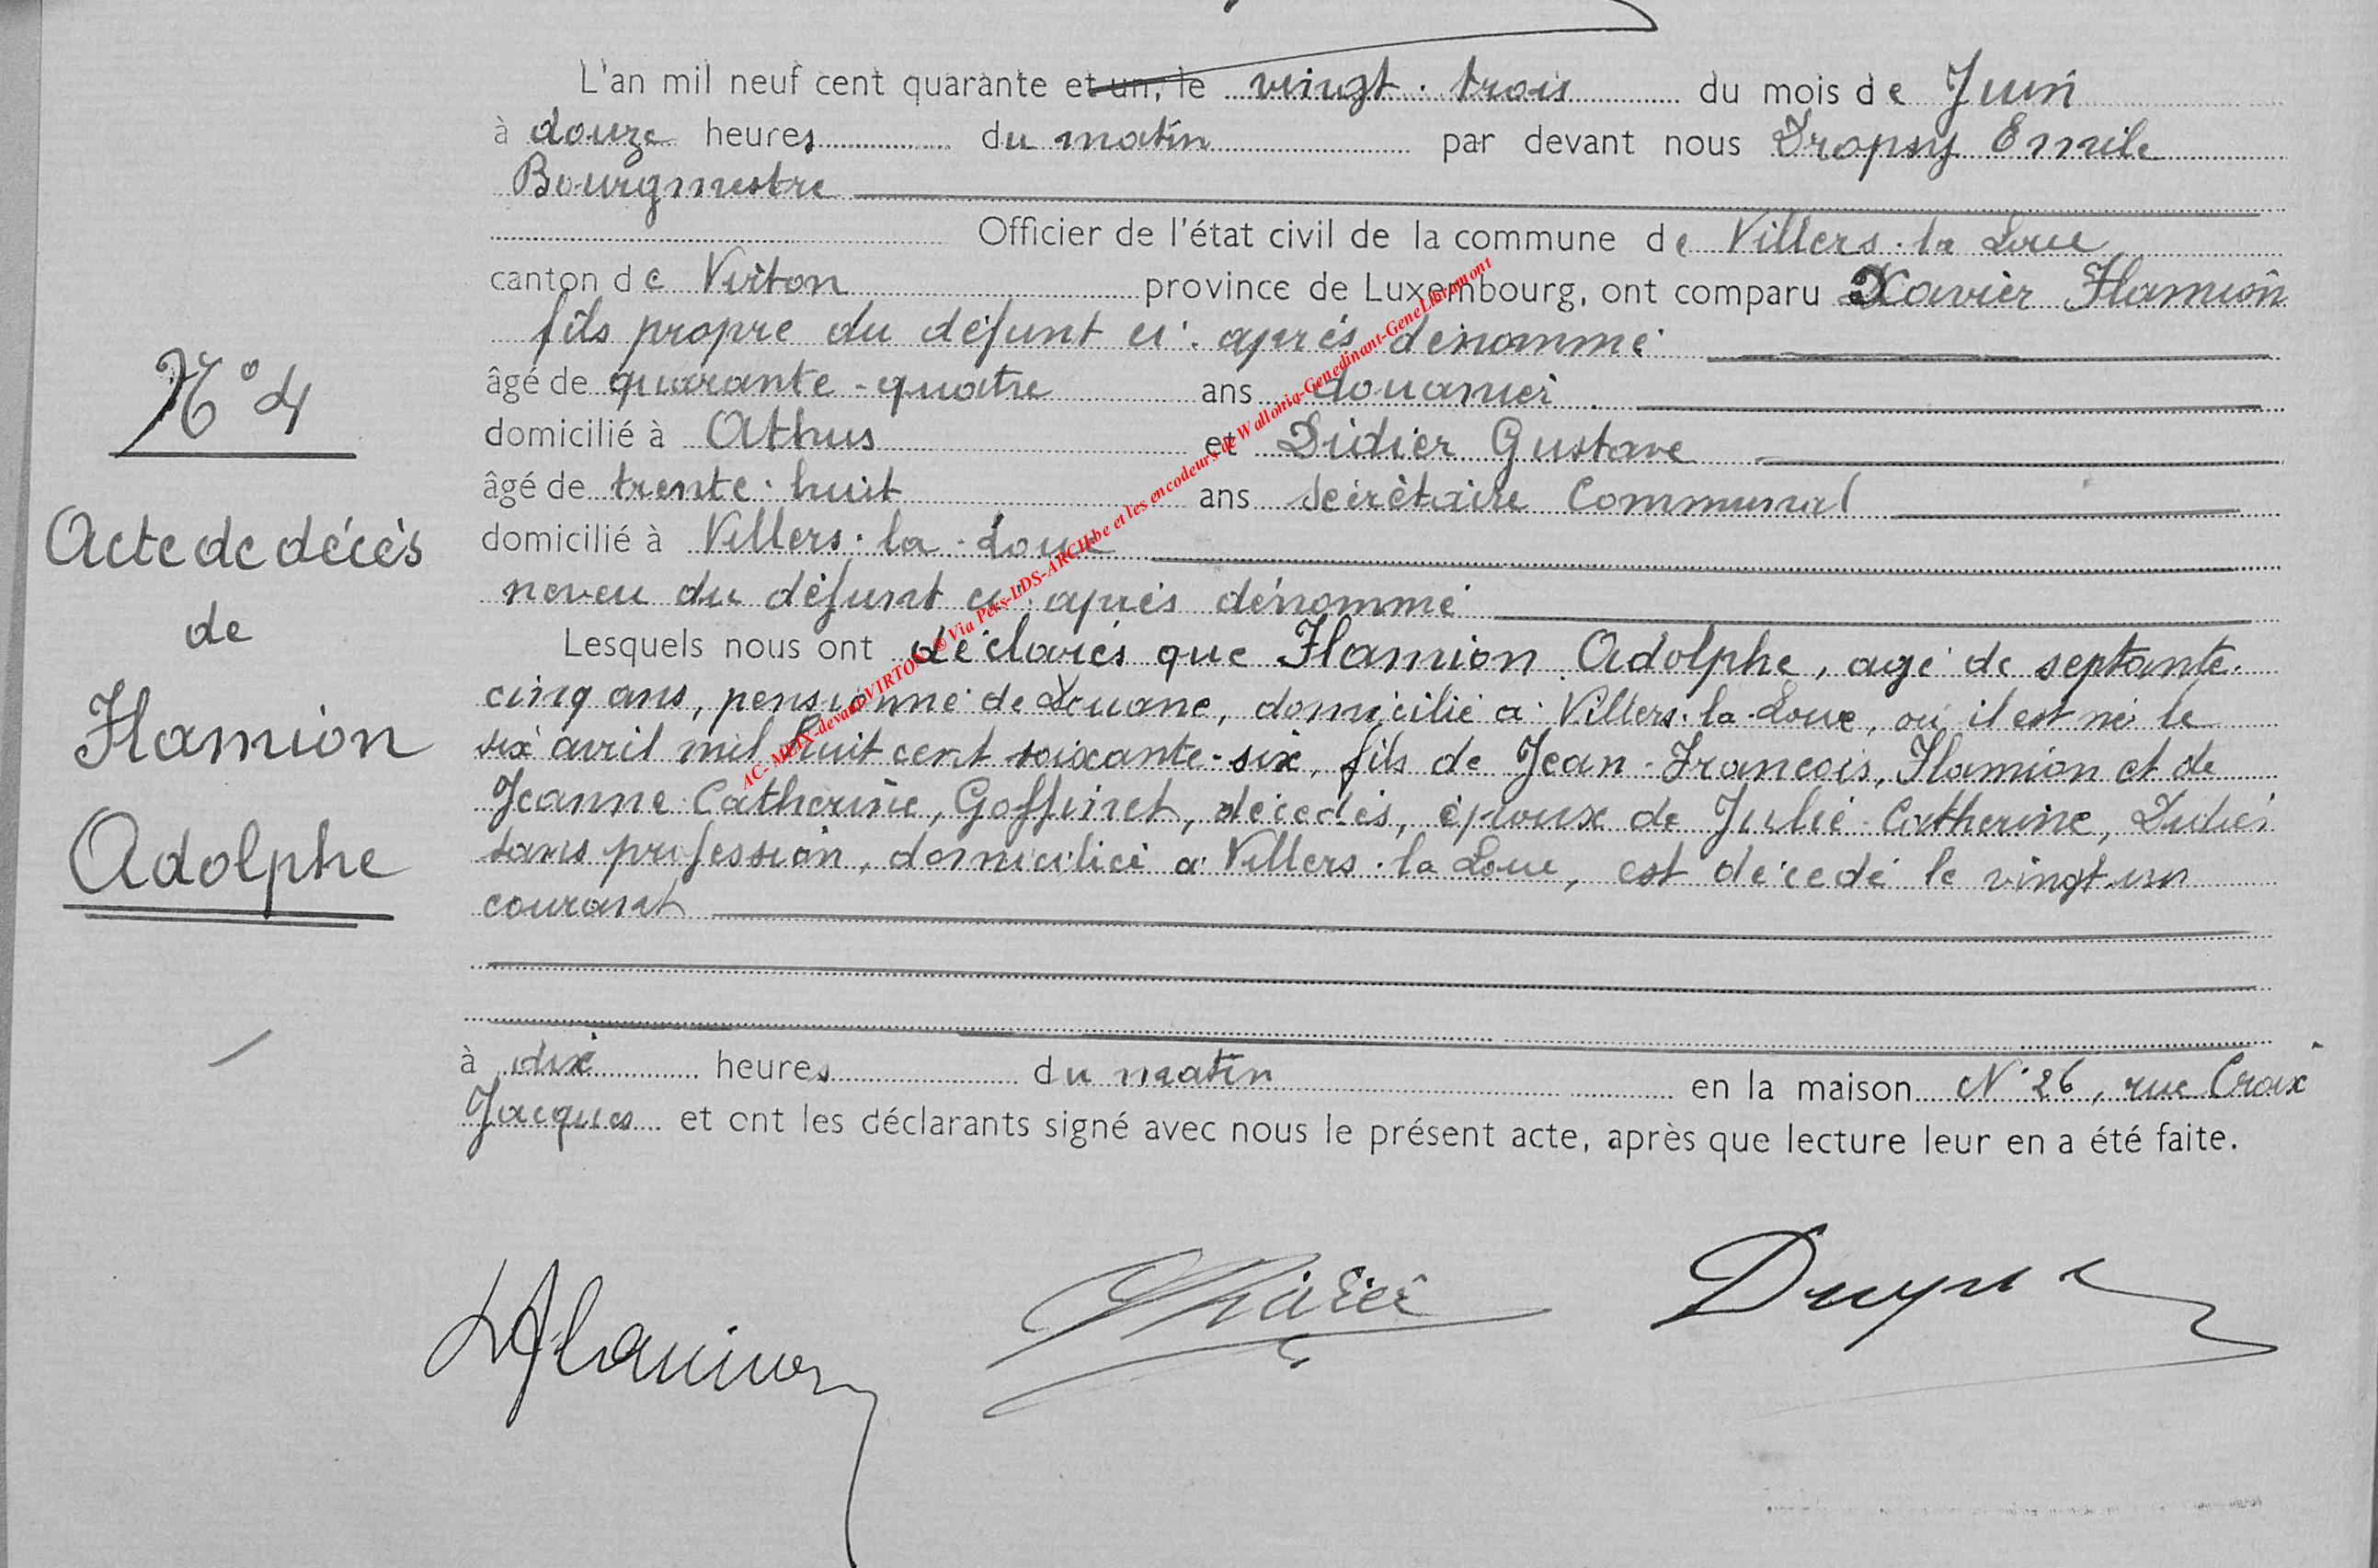 L'an mil neuf cent quarante et un, le vingt-trois du mois de Juin
à douze heures du matin par devant nous Dropsy Emile
Bourgmestre
Officier de l'état civil de la commune de Villers-la-Loue
canton de Virton province de Luxembourg, ont comparu Xavier Flamion
fils propre du défunt ci-après dénommé
âgé de quarante-quatre ans douanier
domicilié à Athus et Didier Gustave
âgé de trente-huit ans secrétaire Communal
domicilié à Villers-la-Loue
neveu du défunt ci-après dénommé
Lesquels nous ont déclarés que Flamion Adolphe, agé de septante-
cinq ans, pensionné de Douane, domicilié à Villers-la-Loue, où il est né le
six avril mil huit cent soixante-six, fils de Jean-Francois, Flamion et de
Jeanne-Catherine, Goffinet, décedés, époux de Julie-Catherine, Didier
sans profession, domicilié à Villers-la-Loue, est décédé le vingt-un
courant
à dix heures du matin en la maison N° 26, rue Croix
Jacques et ont les déclarants signé avec nous le présent acte, après que lecture leur en a été faite.
N° 4
Acte de décès
de
Flamion
Adolphe
AC- MEIX-devant-VIRTON © Via Pers-LDS-ARCH.be et les encodeurs de Wallonia-Genedinant-GeneLibramont